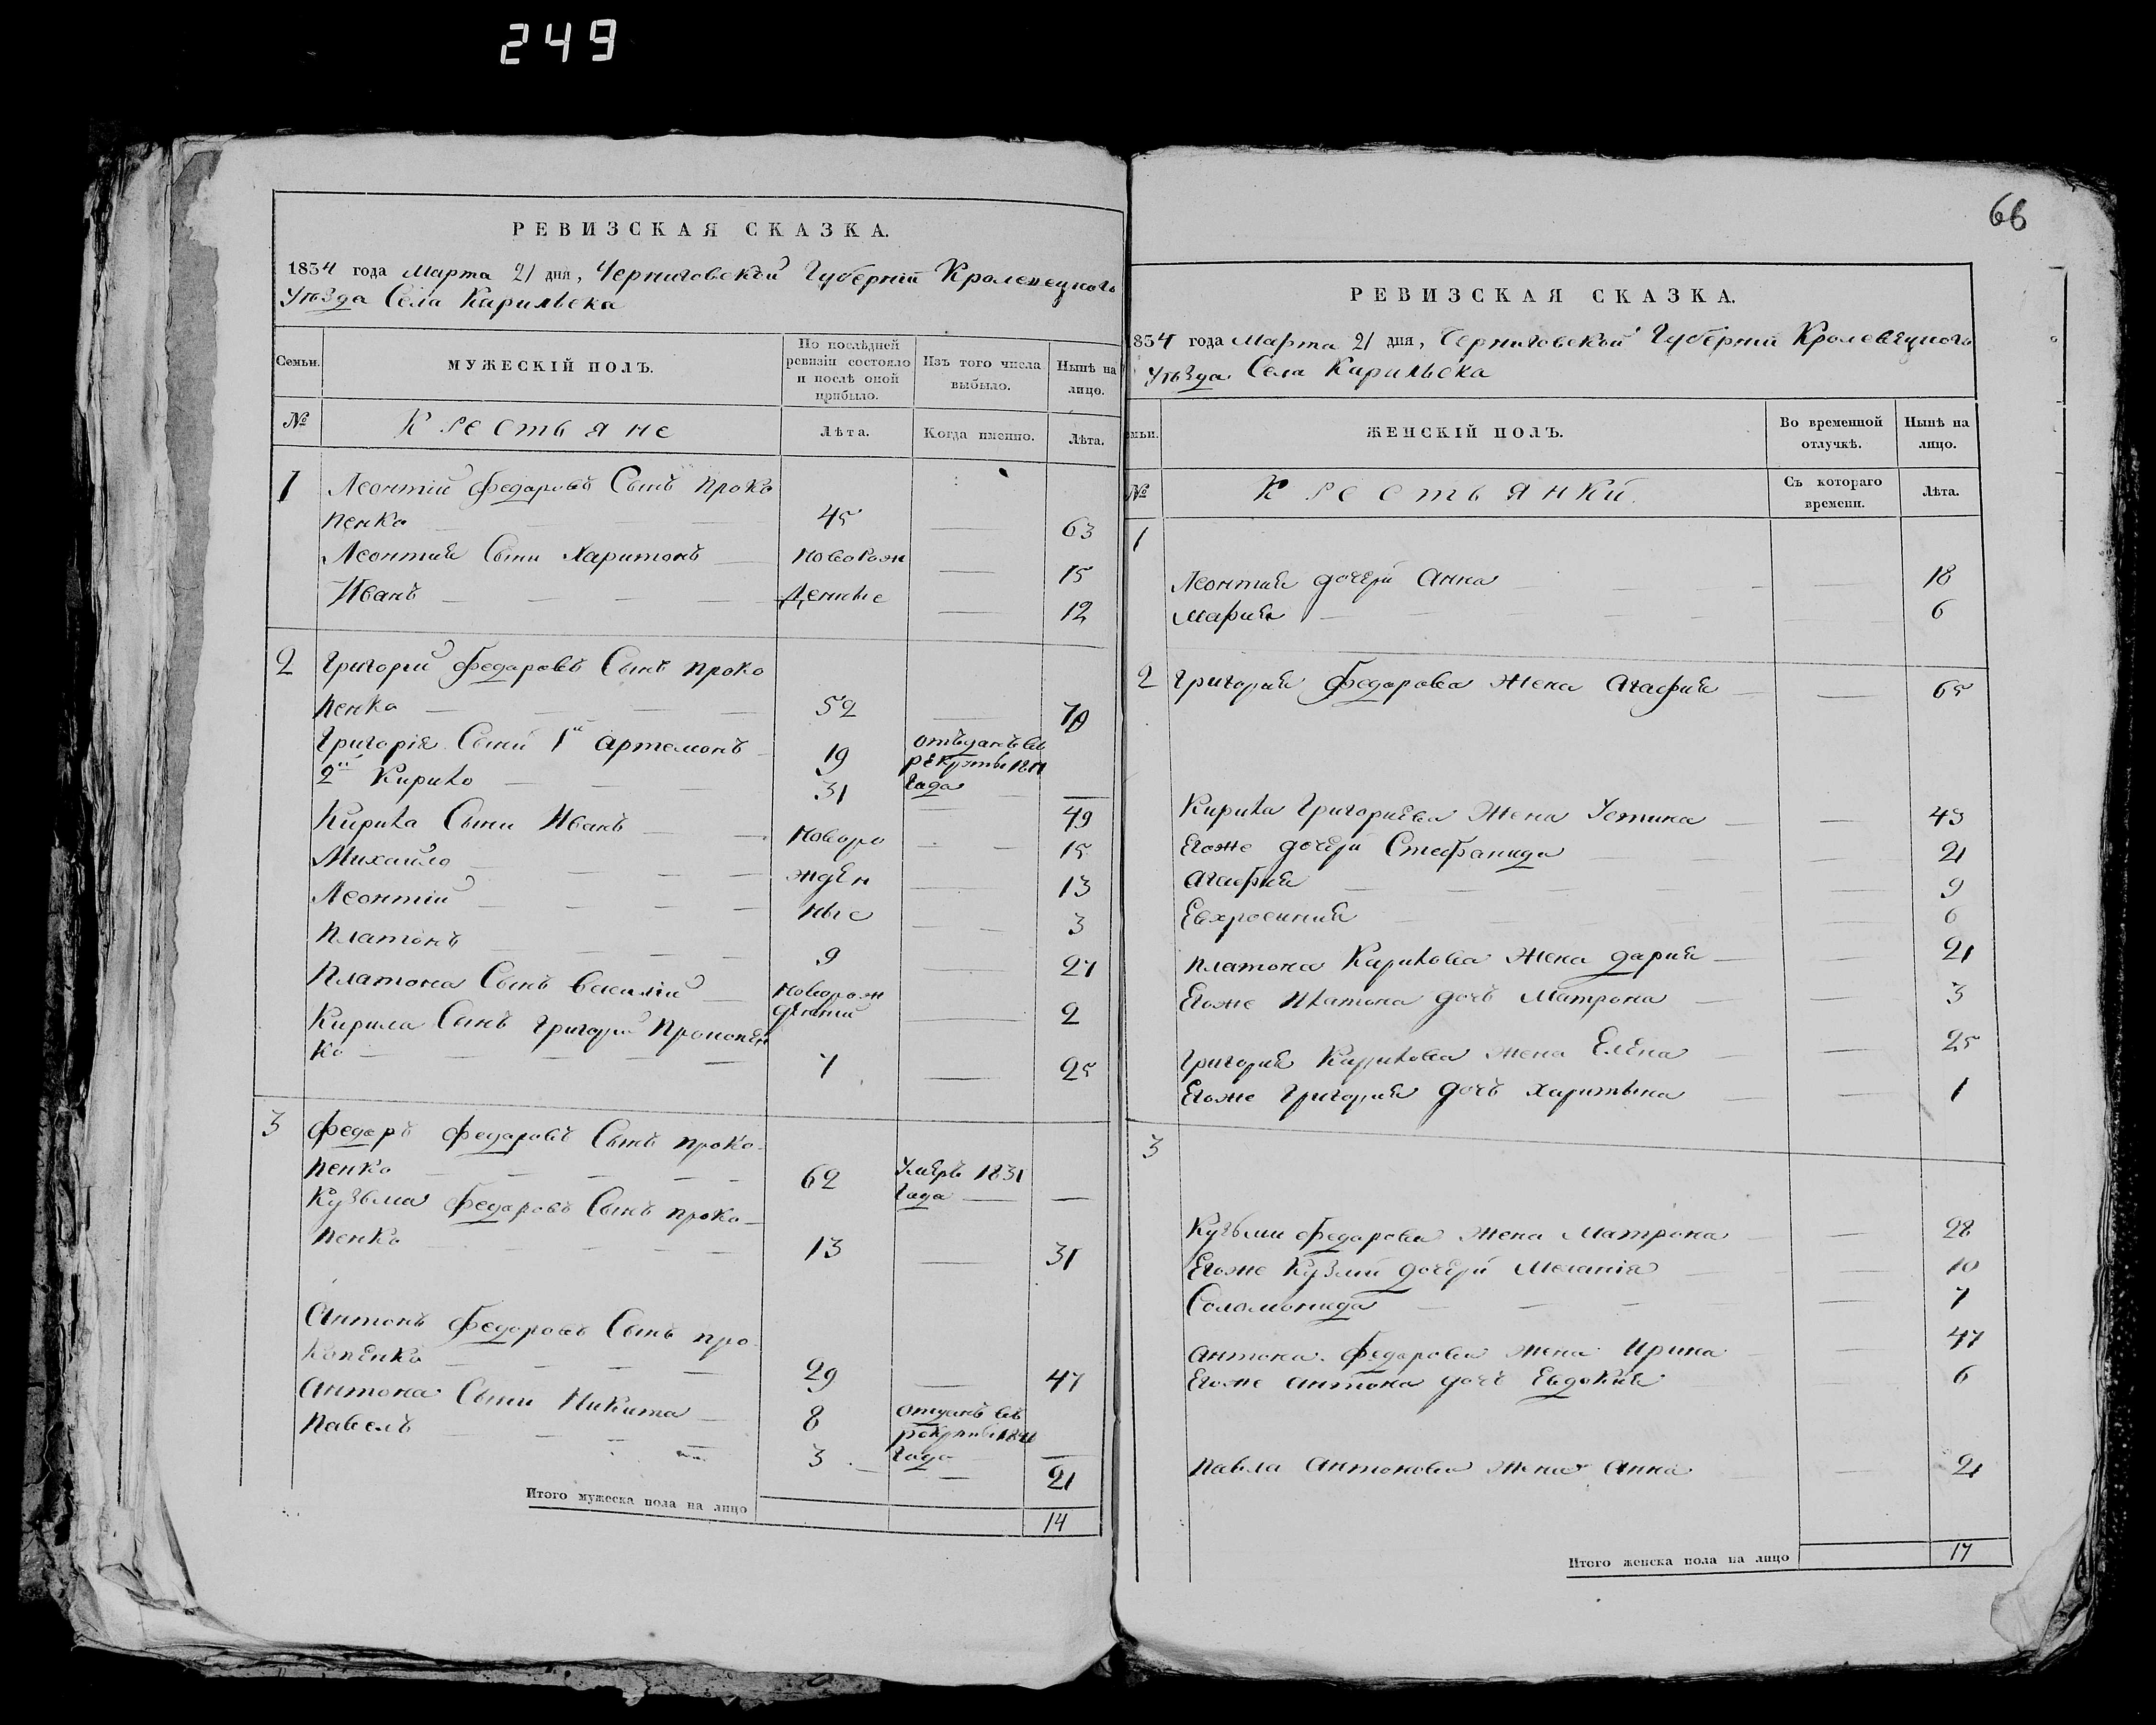 249
66
РЕВИЗСКАЯ СКАЗКА.
1834 года Марта 21 дня, Черниговской Губерніи Кролевецкого
Уѣзда Села Карильска
Семьи. МУЖЕСКІЙ ПОЛЪ. По послѣдней ревизіи состояло и послѣ оной прибыло. Изъ того числа выбыло. Нынѣ на лицо.
№ Крестьяне Лѣта. Когда именно. Лѣта.
1 Леонтій Федаровъ Сынъ Проко
пенко 45 63
Леонтия Сыни Харитонъ новорож 15
Иванъ денные 12
2 Григорій Федаровъ Сынъ Проко
пенко 52 70
Григорія Сыни 1й Артемонъ 19 отъданъ въ рекруты
2й Кирико 31 года — 49
Кирика Сыни Иванъ новоро 15
Михайло жден 13
Леонтій ные 3
Платонъ 9 27
Платона Сынъ Василій новорож денный 2
Кирика Сынъ Григорій Прокопен
ко 7 25
3 Федаръ Федаровъ Сынъ Проко-
пенко 62 Умеръ 1831 Года —
Кузьма Федаровъ Сынъ Проко-
пенко 13 31
Антонъ Федаровъ Сынъ Про-
копенко 29 47
Антона Сыни Никита 8 отданъ въ рекруты Года —
Павелъ 3 21
Итого мужеска пола на лицо 14
РЕВИЗСКАЯ СКАЗКА.
1834 года Марта 21 дня, Черниговской Губерніи Кролевецкого
Уѣзда Села Карильска
емьи. ЖЕНСКІЙ ПОЛЪ. Во временной отлучкѣ. Нынѣ на лицо.
№ Крестьянкй. Съ котораго времени. Лѣта.
1
Леонтия дочери Анна 18
Мария 6
2 Григория Федарова жена Агафия 65
Кирика Григориева Жена Устина 43
Егоже дочери Стефанида 21
Агафия 9
Евхросиния 6
Платона Карикова жена Дария 21
Егоже Платона дочь Матрона 3
Григория Карикова жена Елена 25
Егоже Григория дочь Харитына 1
3
Кузьми Федарова жена Матрона 28
Егоже Кузми дочери Меланія 10
Соломонида 7
Антона Федарова жена Ирина 47
Егоже Антона дочь Евдокия 6
Павла Антонова жена Анна 21
Итого женска пола на лицо 17